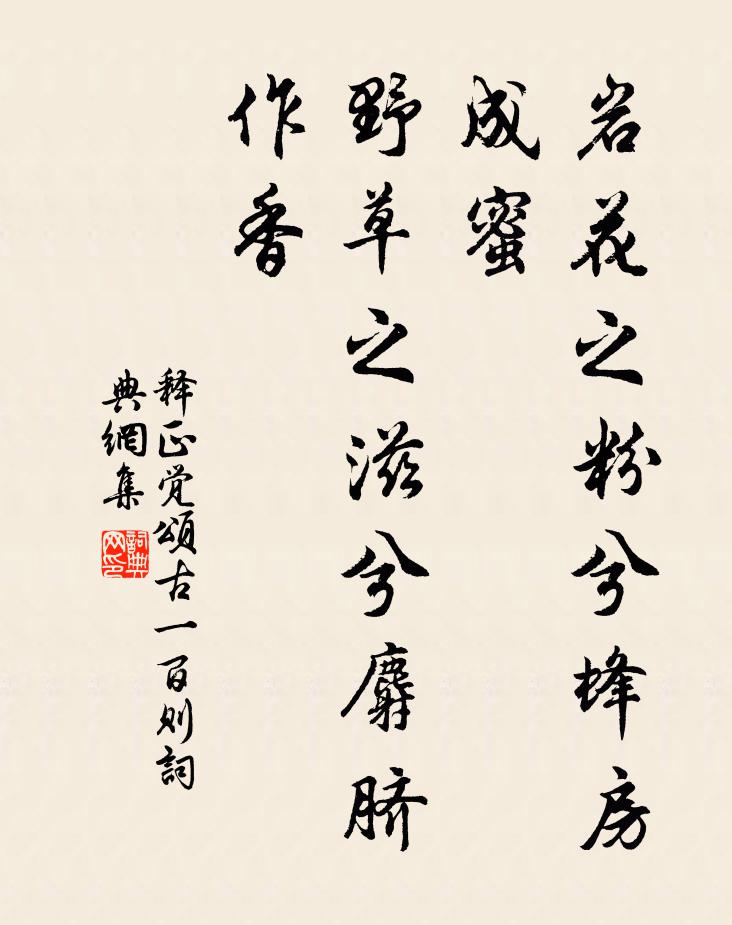 岩花之粉兮蜂房
成蜜
野草之滋兮麝脐
作香
释正觉颂古一百则詞
典網集
詞典网印